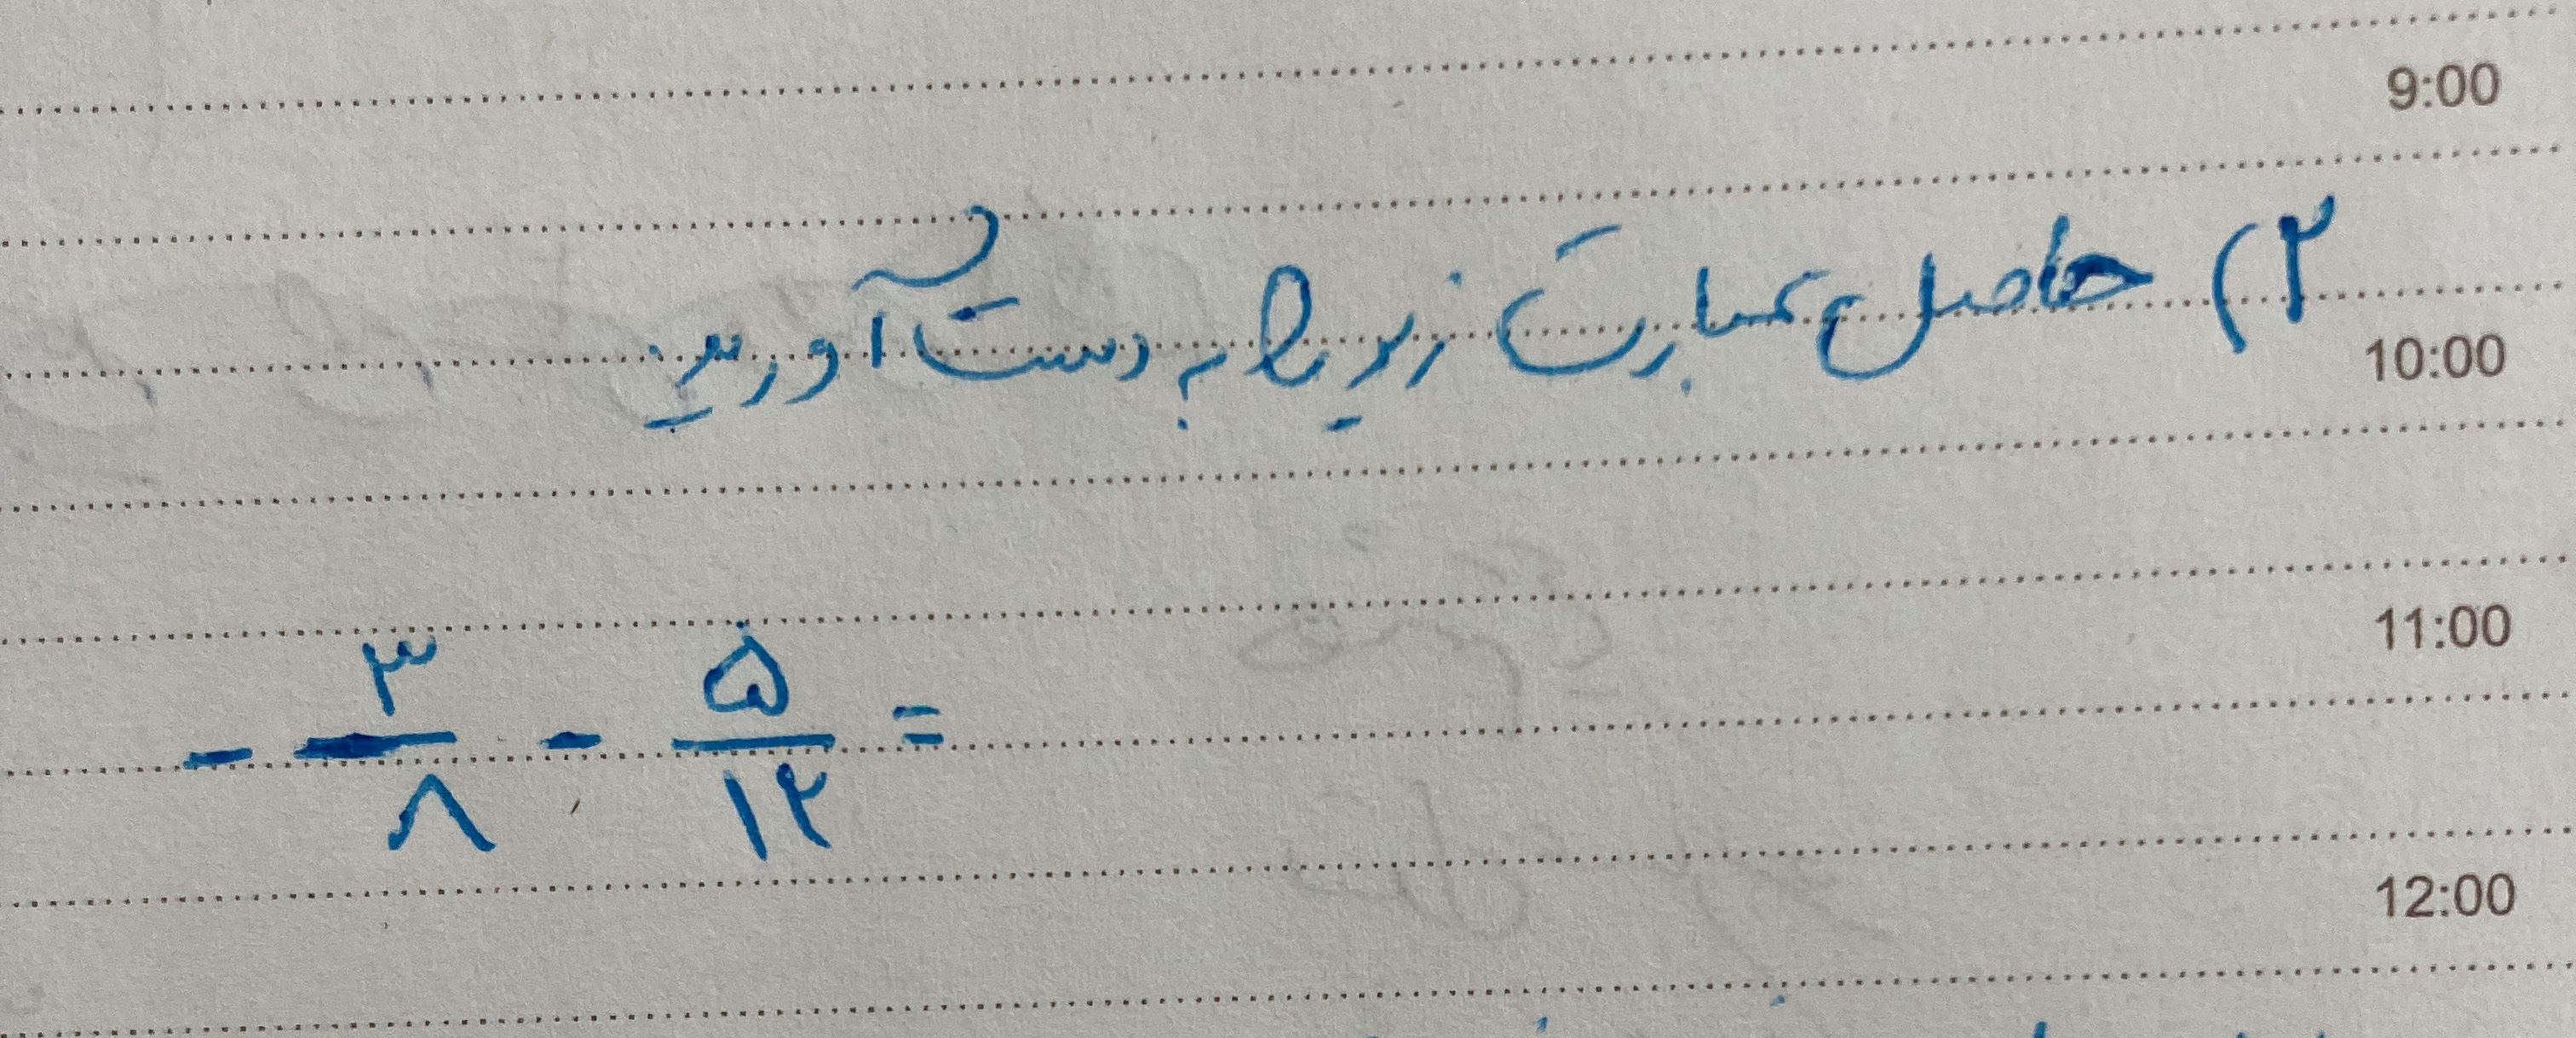 9:00
۲) حاصل عبارت زیر را به دست آورید.
10:00
11:00
- ۳/۸ - ۵/۱۲ =
12:00